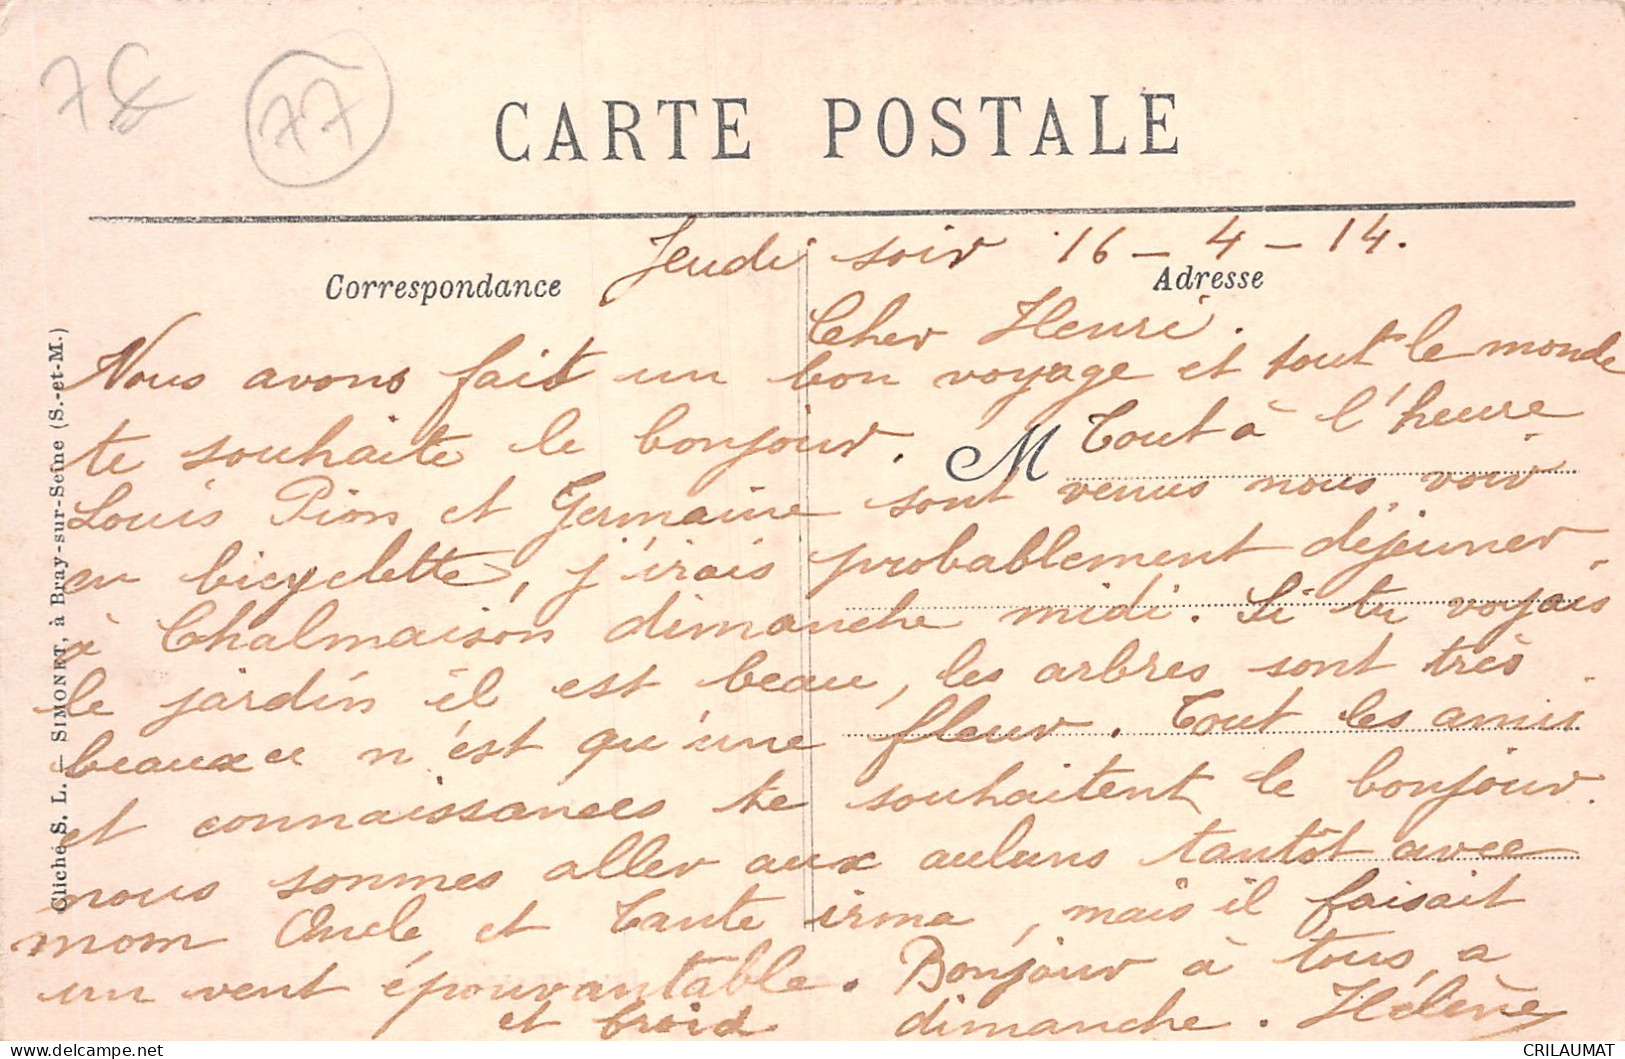 78 77
CARTE POSTALE
Correspondance
Adresse
Jeudi soir 16-4-14.
Cher Henri.
Nous avons fait un bon voyage et tout le monde
te souhaite le bonjour. M Tout à l'heure
Louis Pion et Germaine sont venus nous voir
en bicyclette, j'irais probablement déjeuner
à Chalmaison dimanche midi. Si tu voyais
le jardin il est beau, les arbres sont très
beaux ce n'est qu'une fleur. Tout les amis
et connaissances te souhaitent le bonjour.
nous sommes aller aux aulans tantôt avec
mom Oncle et Tante irma, mais il faisait
un vent épouvantable. Bonjour à tous, a
et froid dimanche. Hélène
Cliché S. L. — SIMONET, à Bray-sur-Seine (S.-et-M.)
CRILAUMAT